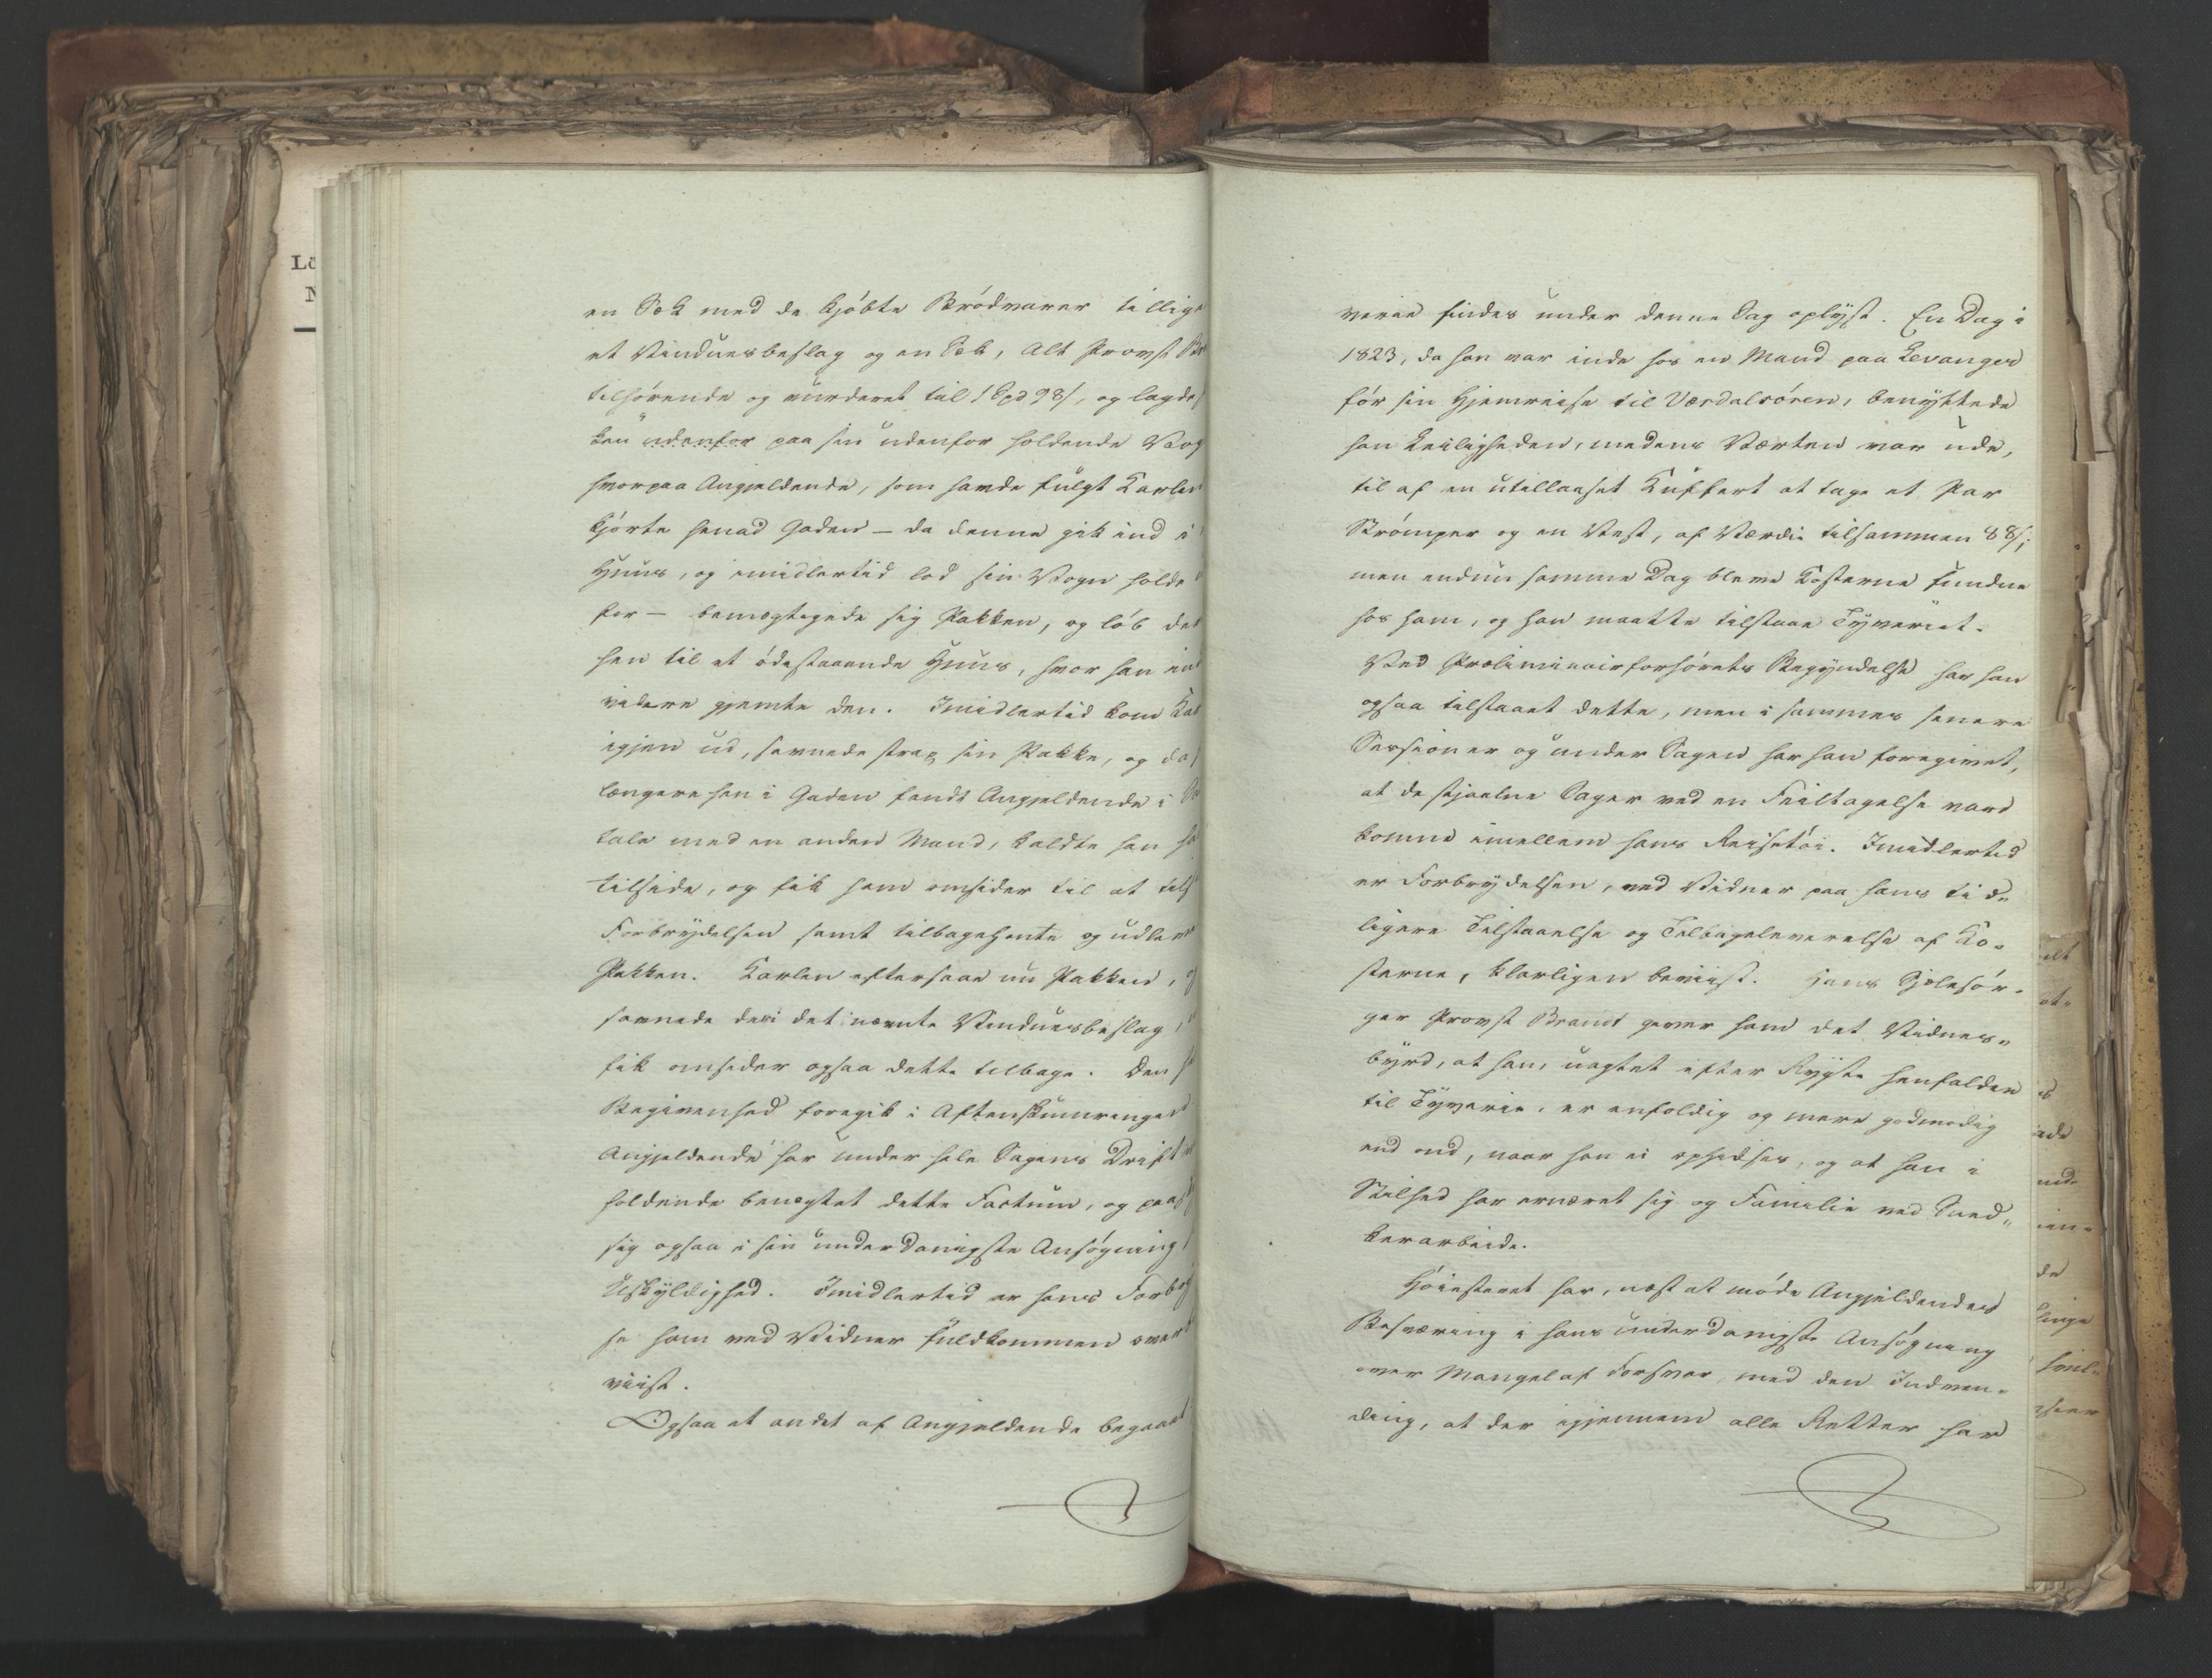 en Sæk med de kjøbte Brödvarer tillige
et Vinduesbeslag og en Sæk, Alt Provst
tilhørende og vurderet til 1 Spd 98ß, og lagde
ken udenfor paa sin udenfor holdende Vog
hvorpaa Angjeldende, som havde fulgt Karlen
kjørte henad Gaden – da denne gik ind i
Huus, og imidlertid lod sin Vogn holde
for – bemægtigede sig Pakken, og löb der
hen til et ödestaaende Huus, hvor han in
videre gjemte den. Imidlertid kom Kar
igjen ud, savnede strax sin Pakke, og da
længere hen i Gaden fandt Angjeldende i
tale med en anden Mand, kaldte han
tilside, og fik ham omsider til at tils
Forbrydelsen samt tilbagehente og udleve
Pakken. Karlen eftersaae nu Pakken,
savnede deri det nævnte Vinduesbeslag,
fik omsider ogsaa dette tilbage. Den
Begivenhed foregik i Aftenskumringen
Angjeldende har under hele Sagens Drift
holdende benægtet dette Factum, og paa
sig ogsaa i sin underdanigste Ansøgning
Uskyldighed. Imidlertid er hans Forbry
se ham ved Vidner fuldkommen over
viist.
Ogsaa et andet af Angjeldende begaaet
verie findes under denne Sag oplyst. En Dag i
1823, da han var inde hos en Mand paa Levanger
før sin Hjemreise til Værdalsören, benyttede
han Leiligheden, medens Værten var ude,
til af en utillaaset Kuffert at tage et Par
Strömper og en Vest, af Værdie tilsammen 88ß;
men endnu samme Dag bleve Kosterne fundne
hos ham, og han maatte tilstaae Tyveriet.
Ved Præliminairforhörets Begyndelse har han
ogsaa tilstaaet dette, men i sammes senere
Sessioner og under Sagen har han foregivet,
at de stjaalne Sager ved en Feiltagelse vare
komne imellem hans Reisetöi. Imidlertid
er Forbrydelsen, ved Vidner paa hans tid
ligere Tilstaaelse og Tilbageleverelse af Ko-
sterne, klarligen beviist. Hans Sjelesör-
ger Provst Brandt giver ham det Vidnes-
byrd, at han, uagtet efter Rygte henfalden
til Tyverie, er enfoldig og mere godmodig
end ond, naar han ei ophidses, og at han i
Stilhed har ernæret sig og Familie ved Sned-
kerarbeide.
Høiesteret har, næst at møde Angjeldendes
Besværing i hans underdanigste Ansögning
over Mangel af Forsvar, med den Indven-
ding, at der igjennem alle Retter har